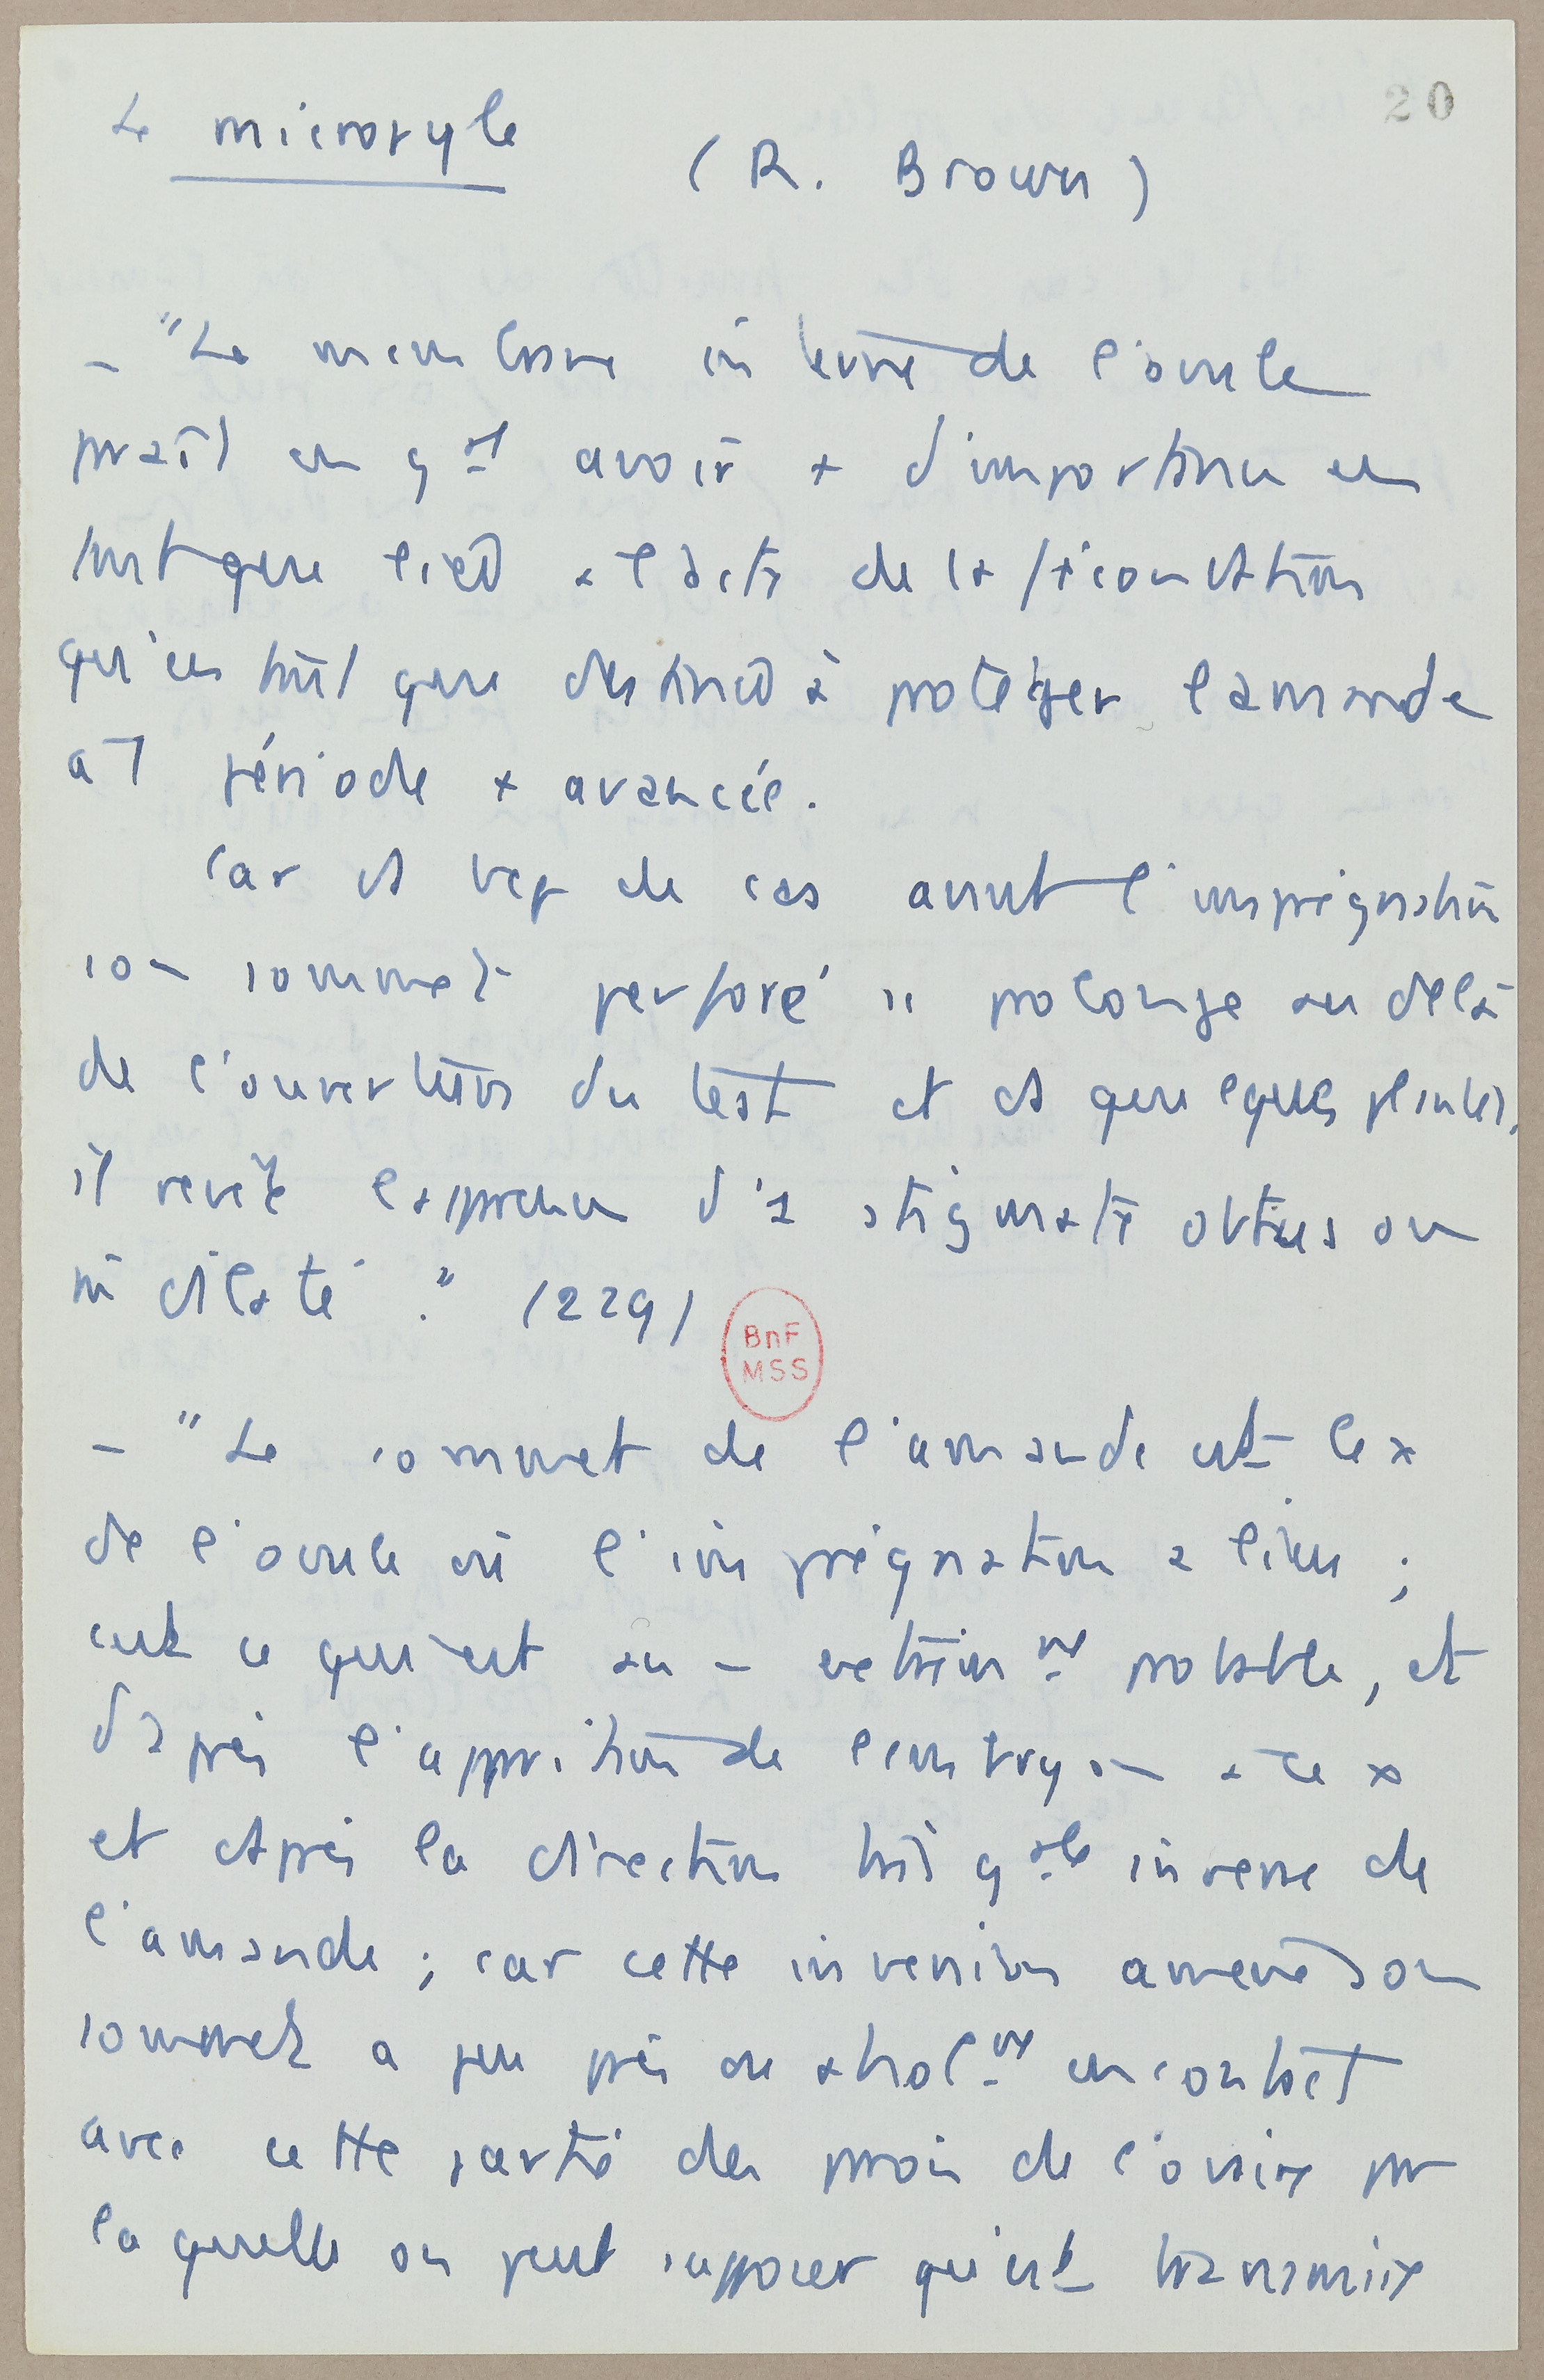 20
Le micropyle
(R. Brown)
- "La membrane interne de l'ovule
paraît en gal avoir + d'importance en
tant que liée à l'acte de la fécondation
qu'en tant que destinée à protéger l'amande
à 1 période + avancée.
Car ds bcp de cas avant l'imprégnation
son sommet perforé se prolonge au delà
de l'ouverture du test et ds quelques plantes,
il revêt l'apparence d'1 stigmate obtus ou
dilaté." (229)
BnF
MSS
- "Le sommet de l'amande est le x
de l'ovule où l'imprégnation a lieu ;
c'est ce qui est au - extrêmnt probable, et
d'après l'apparition de l'embryon à ce x
et d'après la direction très gale inverse de
l'amande ; car cette inversion amène son
sommet à peu près ou absolnt en contact
avec cette partie des parois de l'ovaire par
laquelle on peut supposer qu'est transmise